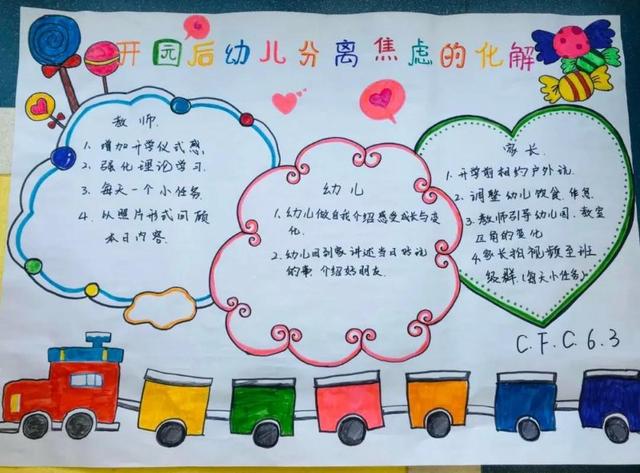 开园后幼儿分离焦虑的化解
教师.
1. 增加开学仪式感
2. 强化理论学习.
3. 每天一个小任务.
4. 从照片形式回顾
本日内容.
幼儿
1. 幼儿做自我介绍感受成长与变
化.
2. 幼儿回到家讲述当日
的事 介绍好朋友.
家长.
1. 开学前相约户外
2. 调整幼儿饮食. 作息.
3. 教师引导幼儿园、教室
互角的变化
4. 家长拍视频至班
级群. (每天小任务)
C.F.C.6.3